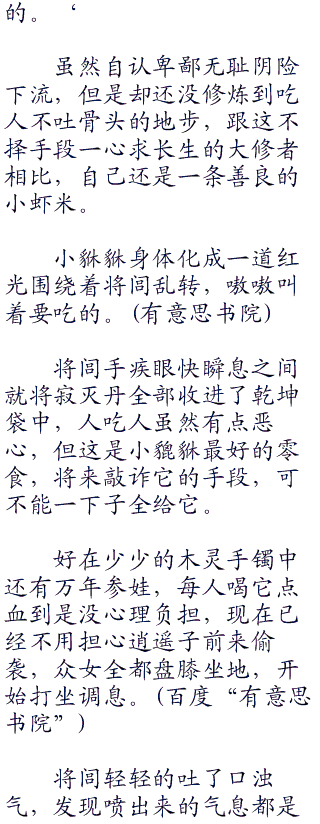 的。‘
虽然自认卑鄙无耻阴险
下流，但是却还没修炼到吃
人不吐骨头的地步，跟这不
择手段一心求长生的大修者
相比，自己还是一条善良的
小虾米。
小貅貅身体化成一道红
光围绕着将闾乱转，嗷嗷叫
着要吃的。(有意思书院)
将闾手疾眼快瞬息之间
就将寂灭丹全部收进了乾坤
袋中，人吃人虽然有点恶
心，但这是小貔貅最好的零
食，将来敲诈它的手段，可
不能一下子全给它。
好在少少的木灵手镯中
还有万年参娃，每人喝它点
血到是没心理负担，现在已
经不用担心逍遥子前来偷
袭，众女全都盘膝坐地，开
始打坐调息。(百度“有意思
书院”)
将闾轻轻的吐了口浊
气，发现喷出来的气息都是